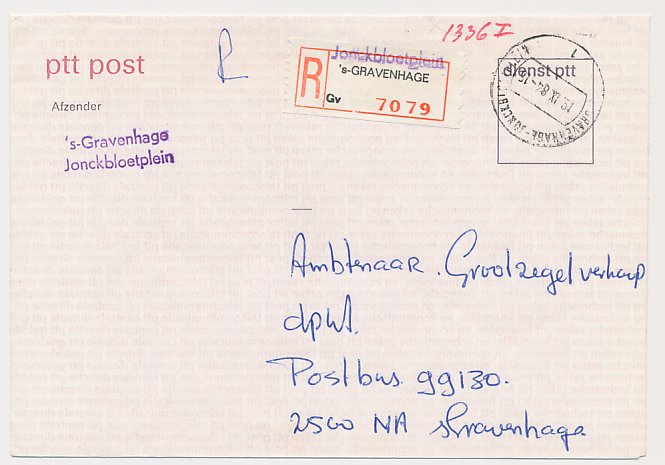 1336 I
ptt post
R
Jonckbloetplein
R
's-GRAVENHAGE
Gv
7079
dienst ptt
19 IX 84-15
Afzender
's-Gravenhage
Jonckbloetplein
Ambtenaar. Grootzegelverkoop
Postbus. 99130.
2500 NA sGravenhage